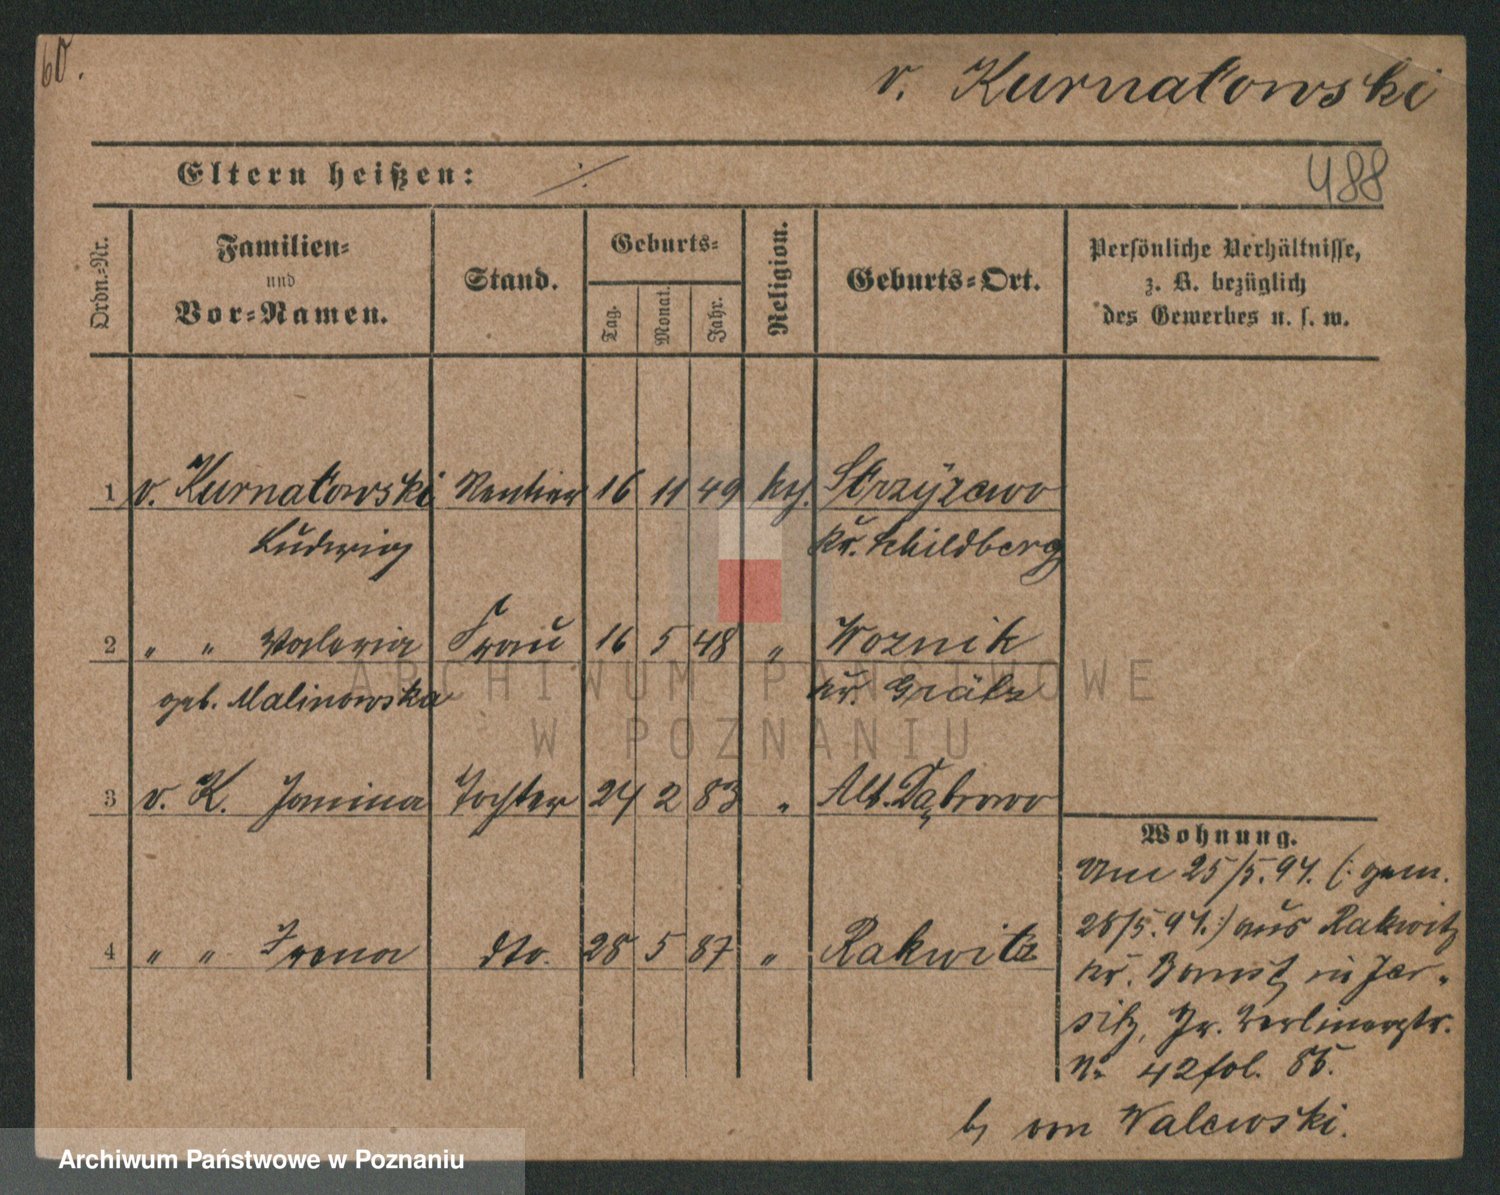 60.
v. Kurnatowski
Eltern heißen: ./.
488
Ordn.-Nr.
Familien-
und
Vor-Namen.
Stand.
Geburts-
Tag.
Monat.
Jahr.
Religion.
Geburts-Ort.
Persönliche Verhältnisse,
z. B. bezüglich
des Gewerbes u. s. w.
1 v. Kurnatowski Rentier 16 11 49 kth. Strzyżewo
Ludwig Kr. Schildberg
2 " " Valeria Frau 16 5 48 " Woznik
geb. Malinowska Kr. Grätz
3 v. K. Janina Tochter 24 2 83 " Alt. Dąbrowo
4 " " Irena dto. 28 5 87 " Rakwitz
Wohnung.
Am 25/5. 94. (: gem.
28/5. 94. :) aus Rakwitz
Kr. Bomst, in Jer-
sitz, Gr. Berlinerstr.
N: 42 fol. 85.
b/ von Walewski.
ARCHIWUM PAŃSTWOWE
W POZNANIU
Archiwum Państwowe w Poznaniu